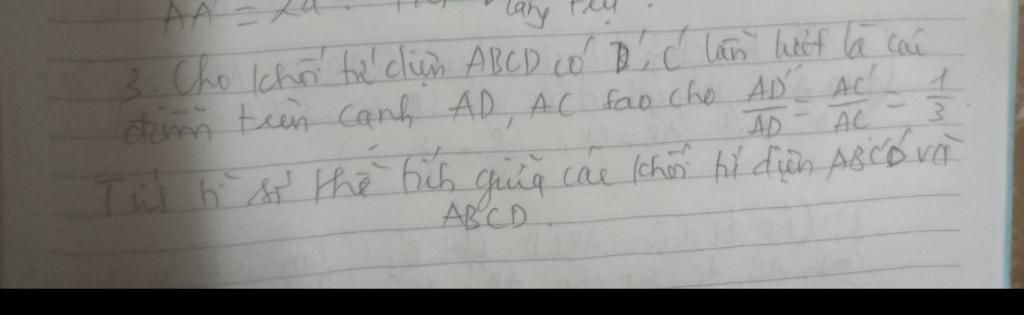 AA' = 2a.
3. Cho khối tứ diện ABCD có D', C' lần lượt là cái
điểm trên cạnh AD, AC sao cho AD'/AD = AC'/AC = 1/3.
Tính tỉ số thể tích giữa các khối tứ diện ABC'D' và
ABCD.